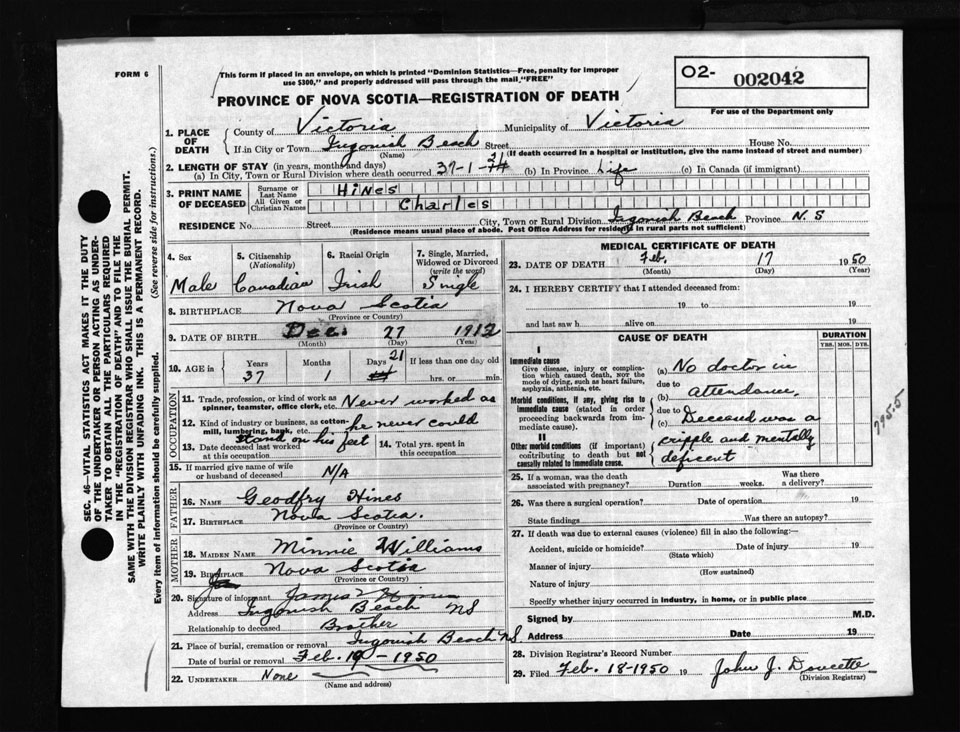 FORM 6
This form if placed in an envelope, on which is printed "Dominion Statistics—Free, penalty for improper
use $300," and properly addressed will pass through the mail "FREE"
O2- 002042
For use of the Department only
PROVINCE OF NOVA SCOTIA—REGISTRATION OF DEATH
1. PLACE OF DEATH County of Victoria Municipality of Victoria
If in City or Town Ingonish Beach Street House No.
(Name) (If death occurred in a hospital or institution, give the name instead of street and number)
2. LENGTH OF STAY (in years, months and days)
(a) In City, Town or Rural Division where death occurred 37-1-21 (b) In Province Life (c) In Canada (if immigrant)
3. PRINT NAME OF DECEASED Surname or Last Name Hines
All Given or Christian Names Charles
RESIDENCE No. Street City, Town or Rural Division Ingonish Beach Province N.S
(Residence means usual place of abode. Post Office Address for residents in rural parts not sufficient)
4. Sex Male
5. Citizenship (Nationality) Canadian
6. Racial Origin Irish
7. Single, Married, Widowed or Divorced (write the word) Single
8. BIRTHPLACE Nova Scotia
(Province or Country)
9. DATE OF BIRTH Dec. 27 1912
(Month) (Day) (Year)
10. AGE in Years 37 Months 1 Days 21 If less than one day old
hrs. or min.
OCCUPATION
11. Trade, profession, or kind of work as spinner, teamster, office clerk, etc. Never worked as
12. Kind of industry or business, as cotton-mill, lumbering, bank, etc. he never could
stand on his feet
13. Date deceased last worked at this occupation
14. Total yrs. spent in this occupation
15. If married give name of wife or husband of deceased N/A
FATHER
16. NAME Geodfry Hines
17. BIRTHPLACE Nova Scotia.
(Province or Country)
MOTHER
18. MAIDEN NAME Minnie Williams
19. BIRTHPLACE Nova Scotia
(Province or Country)
20. Signature of informant James Hines
Address Ingonish Beach NS
Relationship to deceased Brother
21. Place of burial, cremation or removal Ingonish Beach N.S.
Date of burial or removal Feb. 19-1950
22. UNDERTAKER None
(Name and address)
MEDICAL CERTIFICATE OF DEATH
23. DATE OF DEATH Feb. 17 1950
(Month) (Day) (Year)
24. I HEREBY CERTIFY that I attended deceased from:
19 to 19
and last saw h alive on 19
CAUSE OF DEATH
DURATION
YRS. MOS. DYS.
I
Immediate cause
Give disease, injury or complication which caused death, not the mode of dying, such as heart failure, asphyxia, asthenia, etc.
(a) No doctor in
due to
Morbid conditions, if any, giving rise to immediate cause (stated in order proceeding backwards from immediate cause).
(b) attendance,
due to
(c) Deceased was a
II
Other morbid conditions (if important) contributing to death but not causally related to immediate cause.
cripple and mentally
deficent
795.5
25. If a woman, was the death associated with pregnancy? Duration weeks. Was there a delivery?
26. Was there a surgical operation? Date of operation 19
State findings Was there an autopsy?
27. If death was due to external causes (violence) fill in also the following:—
Accident, suicide or homicide? Date of injury 19
(State which)
Manner of injury
(How sustained)
Nature of injury
Specify whether injury occurred in industry, in home, or in public place
Signed by M.D.
Address Date 19
28. Division Registrar's Record Number
29. Filed Feb. 18-1950 19 John J. Doucette
(Division Registrar)
SEC. 46—VITAL STATISTICS ACT MAKES IT THE DUTY
OF THE UNDERTAKER OR PERSON ACTING AS UNDER-
TAKER TO OBTAIN ALL THE PARTICULARS REQUIRED
IN THE "REGISTRATION OF DEATH" AND TO FILE THE
SAME WITH THE DIVISION REGISTRAR WHO SHALL ISSUE THE BURIAL PERMIT.
WRITE PLAINLY WITH UNFADING INK. THIS IS A PERMANENT RECORD.
(See reverse side for instructions.)
Every item of information should be carefully supplied.